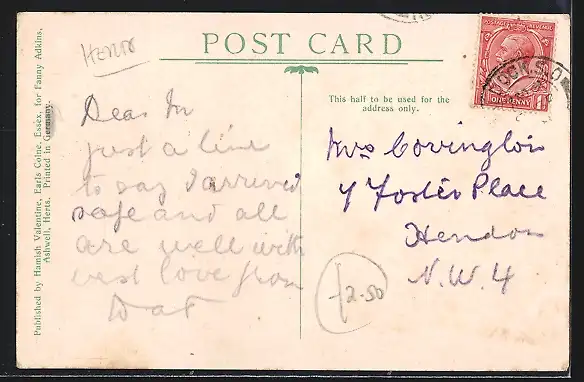 Herts
POST CARD
POSTAGE REVENUE
ONE PENNY
Published by Hamish Valentine, Earls Colne, Essex, for Fanny Adkins,
Ashwell, Herts. Printed in Germany.
This half to be used for the
address only.
Dear M
just a line
to say I arrived
safe and all
are well with
best love from
Dad
Mrs Covington
4 Foster Place
Hendon
N.W. 4
£2-50